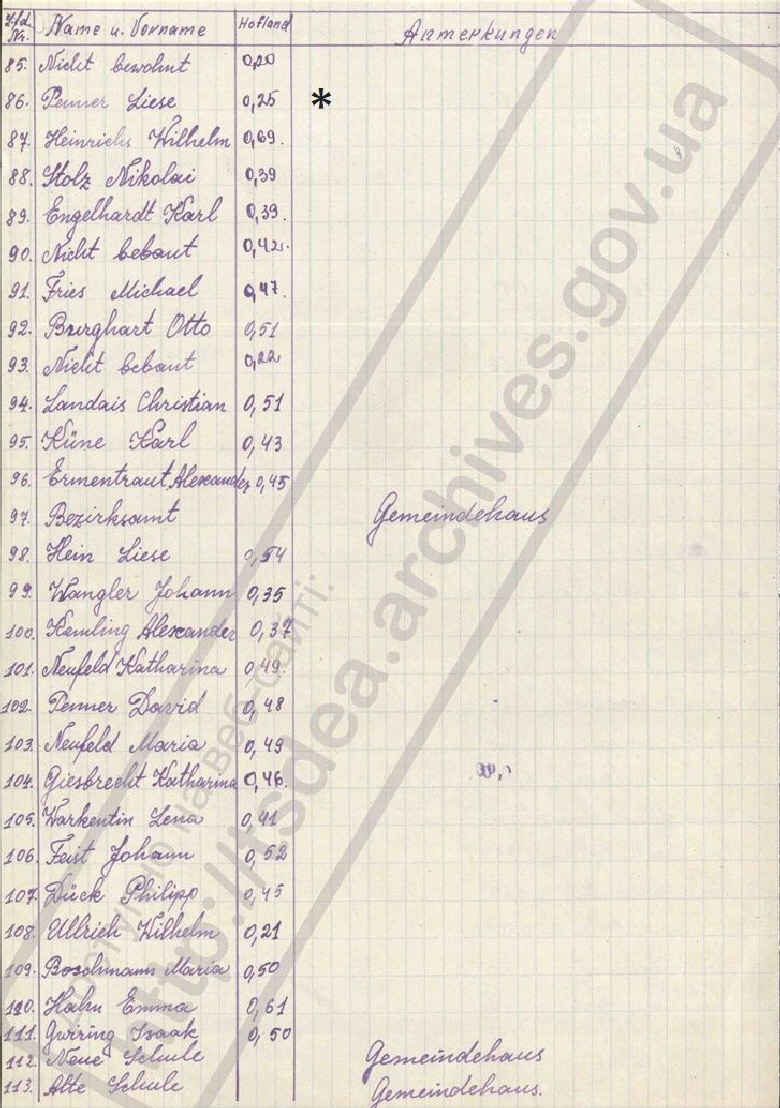 Lfd. Nr. Name u. Vorname Hofland Anmerkungen
85. Nicht bewohnt 0,20
86. Penner Liese 0,25 *
87. Heinrichs Wilhelm 0,69.
88. Stolz Nikolai 0,39
89. Engelhardt Karl 0,39.
90. Nicht bebaut 0,42.
91. Fries Michael 0,47.
92. Burghart Otto 0,51
93. Nicht bebaut 0,22
94. Landais Christian 0,51
95. Küne Karl 0,43
96. Ermentraut Alexander 0,45
97. Bezirksamt Gemeindehaus
98. Hein Liese 0,54
99. Wangler Johann 0,35
100. Kemling Alexander 0,37
101. Neufeld Katharina 0,49.
102. Penner David 0,48
103. Neufeld Maria 0,49
104. Giesbrecht Katharina 0,46.
105. Warkentin Lena 0,41
106. Feist Johann 0,52
107. Dück Philipp 0,45
108. Ullrich Wilhelm 0,21
109. Boschmann Maria 0,50
110. Hahn Emma 0,61
111. Gwiring Isaak 0,50
112. Neue Schule Gemeindehaus
113. Alte Schule Gemeindehaus.
на веб-сайті:
http://tsdea.archives.gov.ua